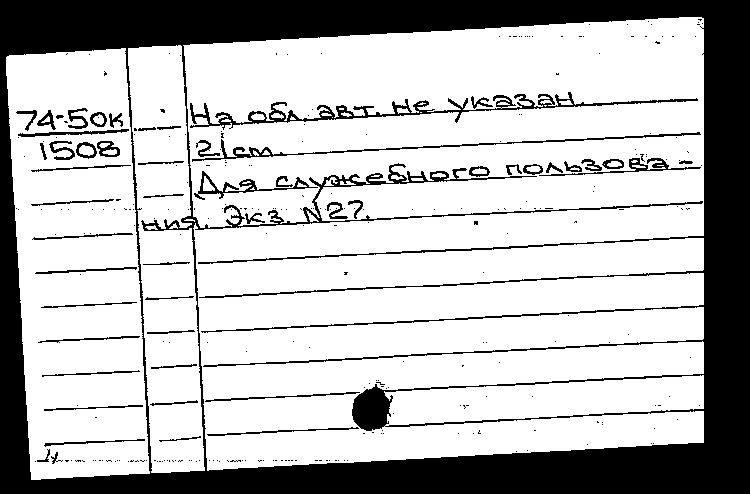 74-50к На обл. авт. не указан.
1508 21 cm.
Для служебного пользова-
ния. Экз. N27.